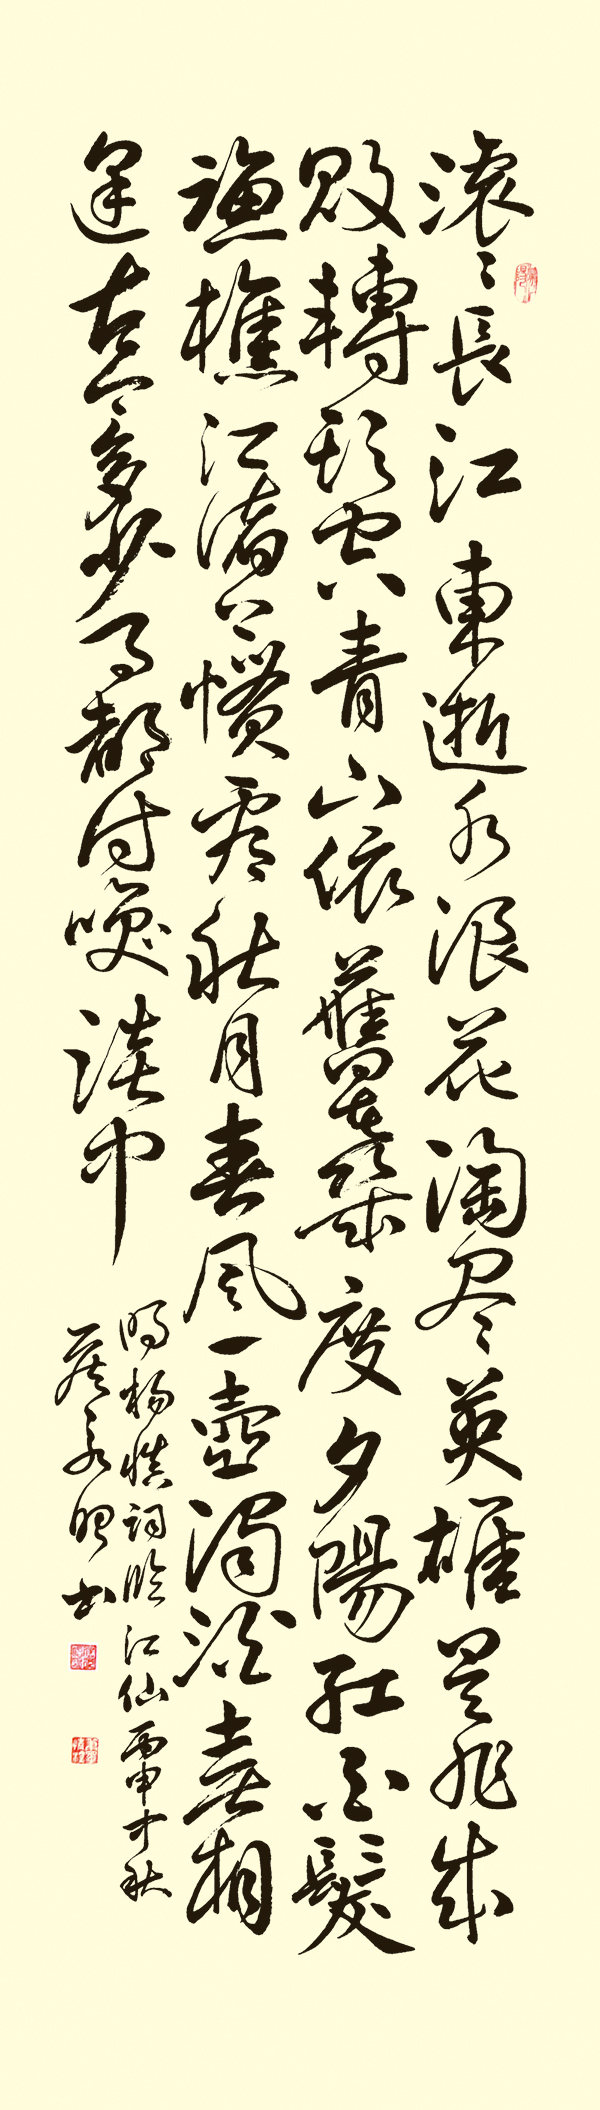 滚〻長江東逝水浪花淘尽英雄是非成
敗轉頭空青山依舊在幾度夕陽紅白髮
漁樵江渚上慣看秋月春風一壺濁酒喜相
逢古今多少事都付咲談中
明楊慎詞臨江仙丙申中秋
永書